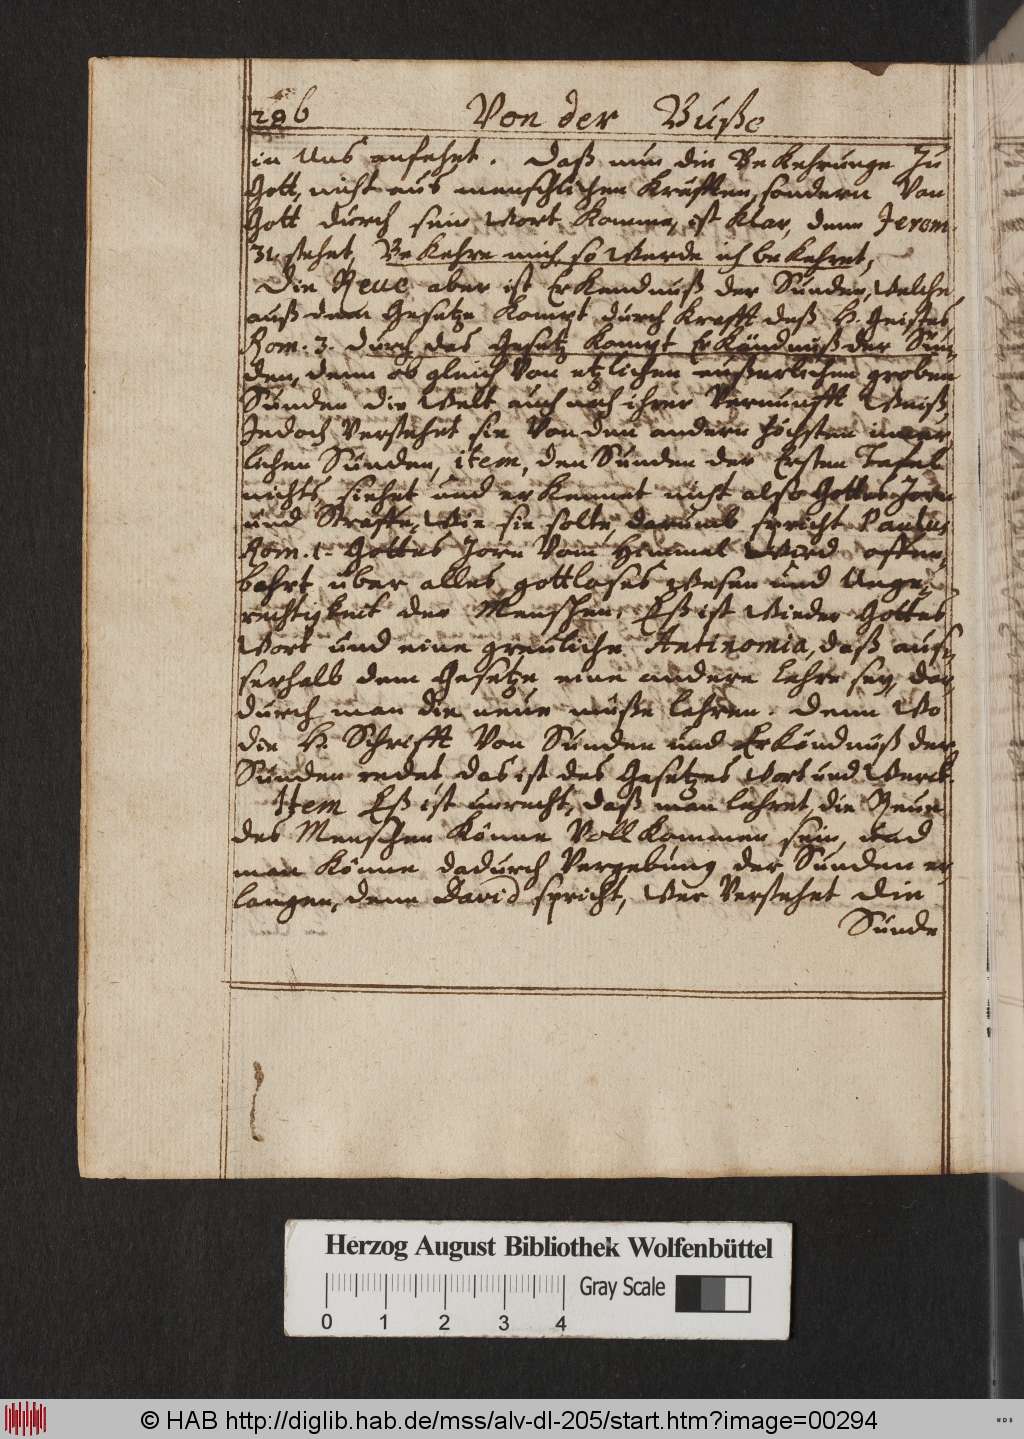 286 Von der Buße
in Uns anfehet. Daß nun die Bekehrunge zu
Gott, nicht aus menschlichen Kräfften, sondern Von
Gott durch sein Wort komme, ist klar, denn Jerem.
31. stehet, Bekehre mich so werde ich bekehret,
Die Reue aber ist Erkendnuß der Sunden, Welche
auß dem Gesetze kompt durch krafft deß H. Geistes,
Rom. 3. durch das Gesetz kompt Erkändnuß der Sün-
den, denn ob gleich Von etzlichen eußerlichen groben
Sünden die Welt auch nach ihrer Vernunfft Weiß,
Jedoch Verstehet sie Von den andern höchsten inner-
lichen Sünden, item, den Sünden der Ersten Tafel
nichts, siehet und erkennet nicht also Gottes Zorn
und Straffe, Wie sie solte, darumb spricht Paulus
Rom. 1. Gottes Zorn Vom Himmel Wird offen-
bahrt über alles gottloses Wesen und Unge-
rechtigkeit der Menschen. Eß ist Wieder Gottes
Wort und eine greuliche Antinomia, daß aus-
serhalb dem Gesetze eine andere Lehre sey, da-
durch man die reue müße lehren. Denn Wo
die H. Schrifft Von Sünden und Erkändnuß der
Sünden redet, das ist des Gesetzes Wort und Werck.
Item Eß ist unrecht, daß man lehret, die Reue
des Menschen könne Vollkommen sein, und
man könne dadurch Vergebung der Sünden er-
langen, denn David spricht, Wer Verstehet die
Sünde
Herzog August Bibliothek Wolfenbüttel
Gray Scale
0 1 2 3 4
© HAB http://diglib.hab.de/mss/alv-dl-205/start.htm?image=00294